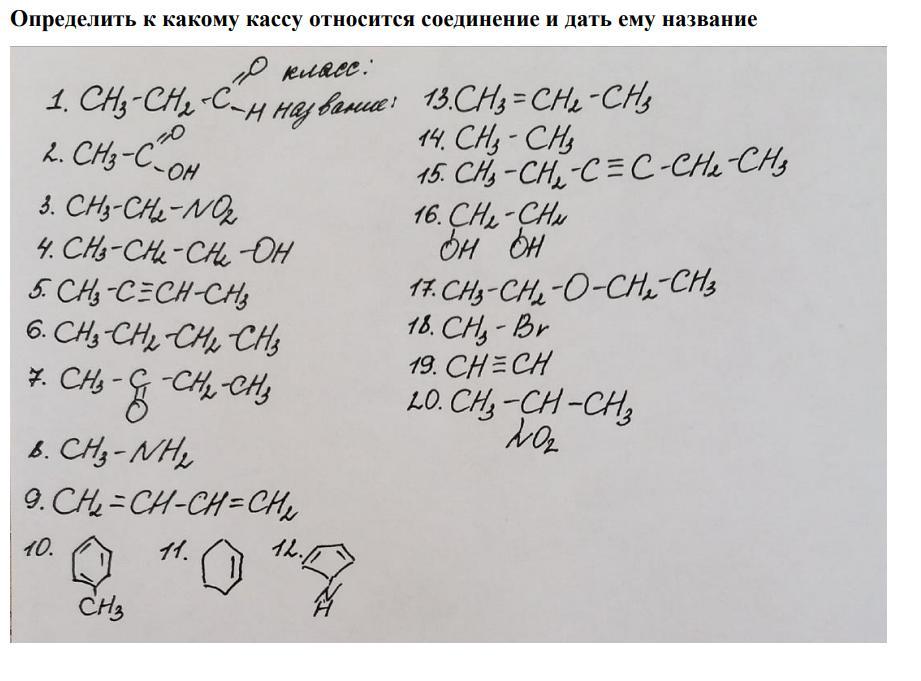 Определить к какому кассу относится соединение и дать ему название
1. CH3-CH2-C=O -H класс: название:
2. CH3-C=O -OH
3. CH3-CH2-NO2
4. CH3-CH2-CH2-OH
5. CH3-C≡CH-CH3
6. CH3-CH2-CH2-CH3
7. CH3-C-CH2-CH3
O
8. CH3-NH2
9. CH2=CH-CH=CH2
10.
CH3
11.
12.
N
H
13. CH3=CH2-CH3
14. CH3-CH3
15. CH3-CH2-C≡C-CH2-CH3
16. CH2-CH2
OH OH
17. CH3-CH2-O-CH2-CH3
18. CH3-Br
19. CH≡CH
20. CH3-CH-CH3
NO2